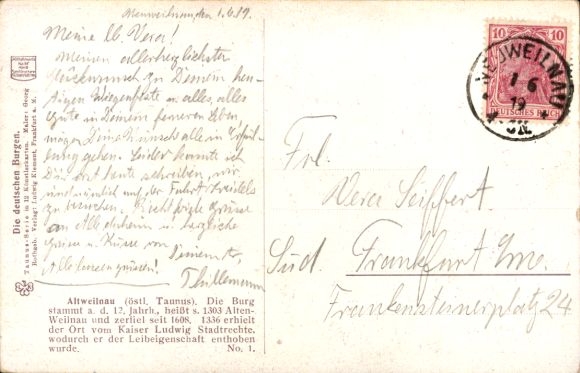 Neuweilnau, den 1.6.19.
Meine lb. Vera!
Meinen allerherzlichsten
Glückwunsch zu Deinem heu-
tigen Wiegenfeste u. alles, alles
Gute in Deinem ferneren Leben,
mögen Deine Wünsche alle in Erfül-
lung gehen. Leider konnte ich
Dir erst heute schreiben, wir
sind nämlich auf der Fahrt
zu besuchen. Recht viele Grüsse
an Alle daheim u. herzliche
Grüsse u. Küsse von Deinem
Alle lassen grüssen!
NEUWEILNAU
1 6
19
10 10
DEUTSCHES REICH
Frl.
Vera Seiffert
Süd. Frankfurt a/M.
Frankensteinerplatz 24
Die deutschen Burgen.
Taunus-Serie in 12 Künstlerkarten. Maler: Georg
Rothgab. Verlag: Ludwig Klement, Frankfurt a. M.
Altweilnau (östl. Taunus). Die Burg
stammt a. d. 12. Jahrh., heißt s. 1303 Alten-
Weilnau und zerfiel seit 1608. 1336 erhielt
der Ort vom Kaiser Ludwig Stadtrechte,
wodurch er der Leibeigenschaft enthoben
wurde. No. 1.